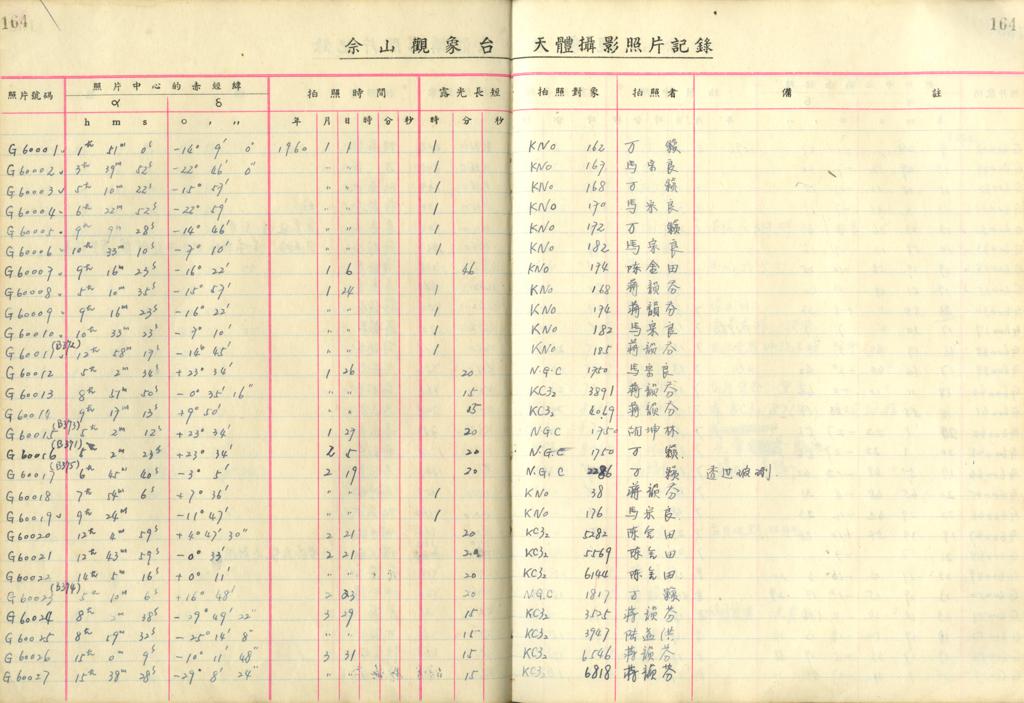 164
164
佘山觀象台 天體攝影照片記錄
照片號碼 照片中心的赤經緯 拍照時間 露光長短 拍照對象 拍照者 備註
α δ
h m s ° ′ ″ 年 月 日 時 分 秒 時 分 秒
G60001 1h 51m 0s -14° 9′ 0″ 1960 1 1 1 KNo 162 万籟
G60002 3h 39m 52s -22° 46′ 0″ " " 1 KNo 167 馬宗良
G60003 5h 10m 22s -15° 57′ " " 1 KNo 168 万籟
G60004 6h 22m 52s -22° 59′ " " 1 KNo 170 馬宗良
G60005 9h 9m 28s -14° 46′ " " 1 KNo 172 万籟
G60006 10h 33m 10s -7° 10′ " " 1 KNo 182 馬宗良
G60007 9h 16m 23s -16° 22′ 1 6 46 KNo 174 陈金田
G60008 5h 10m 35s -15° 57′ 1 24 1 KNo 168 蒋韻芬
G60009 9h 16m 23s -16° 22′ " " 1 KNo 174 蒋韻芬
G60010 10h 33m 23s -7° 10′ " " 1 KNo 182 馬宗良
G60011 (B372) 12h 58m 19s -14° 45′ " " 1 KNo 185 蒋韻芬
G60012 5h 2m 34s +23° 34′ 1 26 20 N.G.C 1750 馬宗良
G60013 8h 51m 50s -0° 35′ 16″ " " 15 KC32 3891 蒋韻芬
G60014 9h 17m 13s +9° 50′ " " 15 KC32 4069 蒋韻芬
G60015 (B373) 5h 2m 12s +23° 34′ 1 29 20 N.G.C 1750 坤林
G60016 (B371) 5h 2m 23s +23° 34′ 2 5 20 N.G.C 1750 万籟
G60017 (B375) 6h 45m 40s -3° 5′ 2 19 20 N.G.C 2286 万籟 透过玻璃.
G60018 7h 54m 6s +7° 36′ " " 1 KNo 38 蒋韻芬
G60019 9h 24m -11° 47′ " " 1 KNo 176 馬宗良
G60020 12h 4m 59s +4° 47′ 30″ 2 21 20 KC32 5282 陈金田
G60021 12h 43m 59s -0° 33′ 2 21 20 KC32 5569 陈金田
G60022 14h 5m 16s +0° 11′ " " 20 KC32 6144 陈金田
G60023 (B374) 5h 10m 6s +16° 48′ 2 23 20 N.G.C 1817 万籟
G60024 8h 2m 38s -29° 49′ 22″ 3 29 15 KC32 3525 蒋韻芬
G60025 8h 59m 32s -25° 14′ 8″ " " 15 KC32 3947
G60026 15h 0m 9s -10° 11′ 48″ 3 31 15 KC32 6546 蒋韻芬
G60027 15h 38m 28s -29° 8′ 24″ " " 15 KC32 6818 蒋韻芬